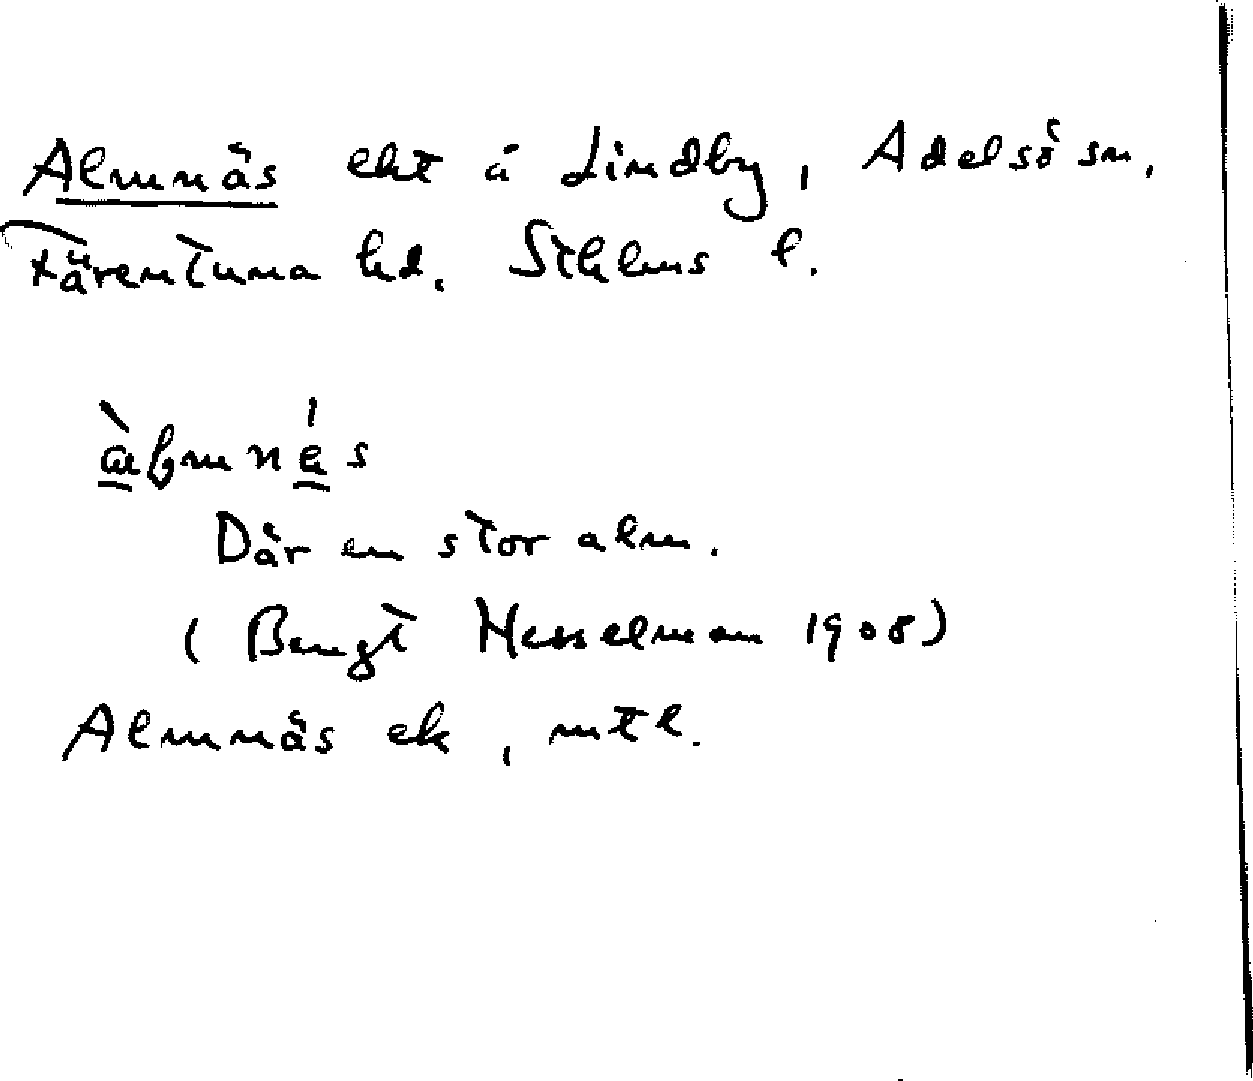 Almnäs eht å Lindby, Adelsö sn,
Färentuna hd. Sthlms l.
àlmnés
Där en stor alm.
(Bengt Hesselman 1908)
Almnäs ek, mtl.